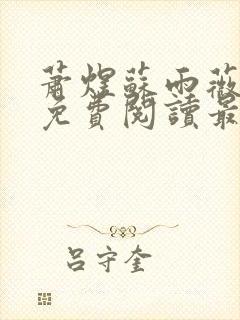 蕭煜蘇雨薇
免費閱讀最
呂守奎